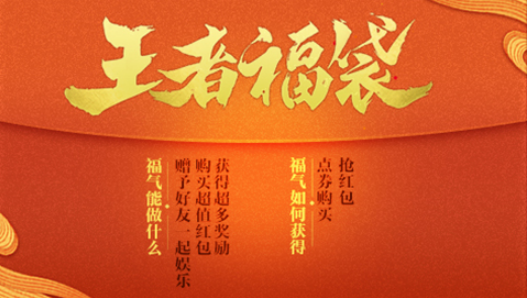 王者福袋
福气如何获得
抢红包
点券购买
福气能做什么
获得超多奖励
购买超值红包
赠予好友一起娱乐